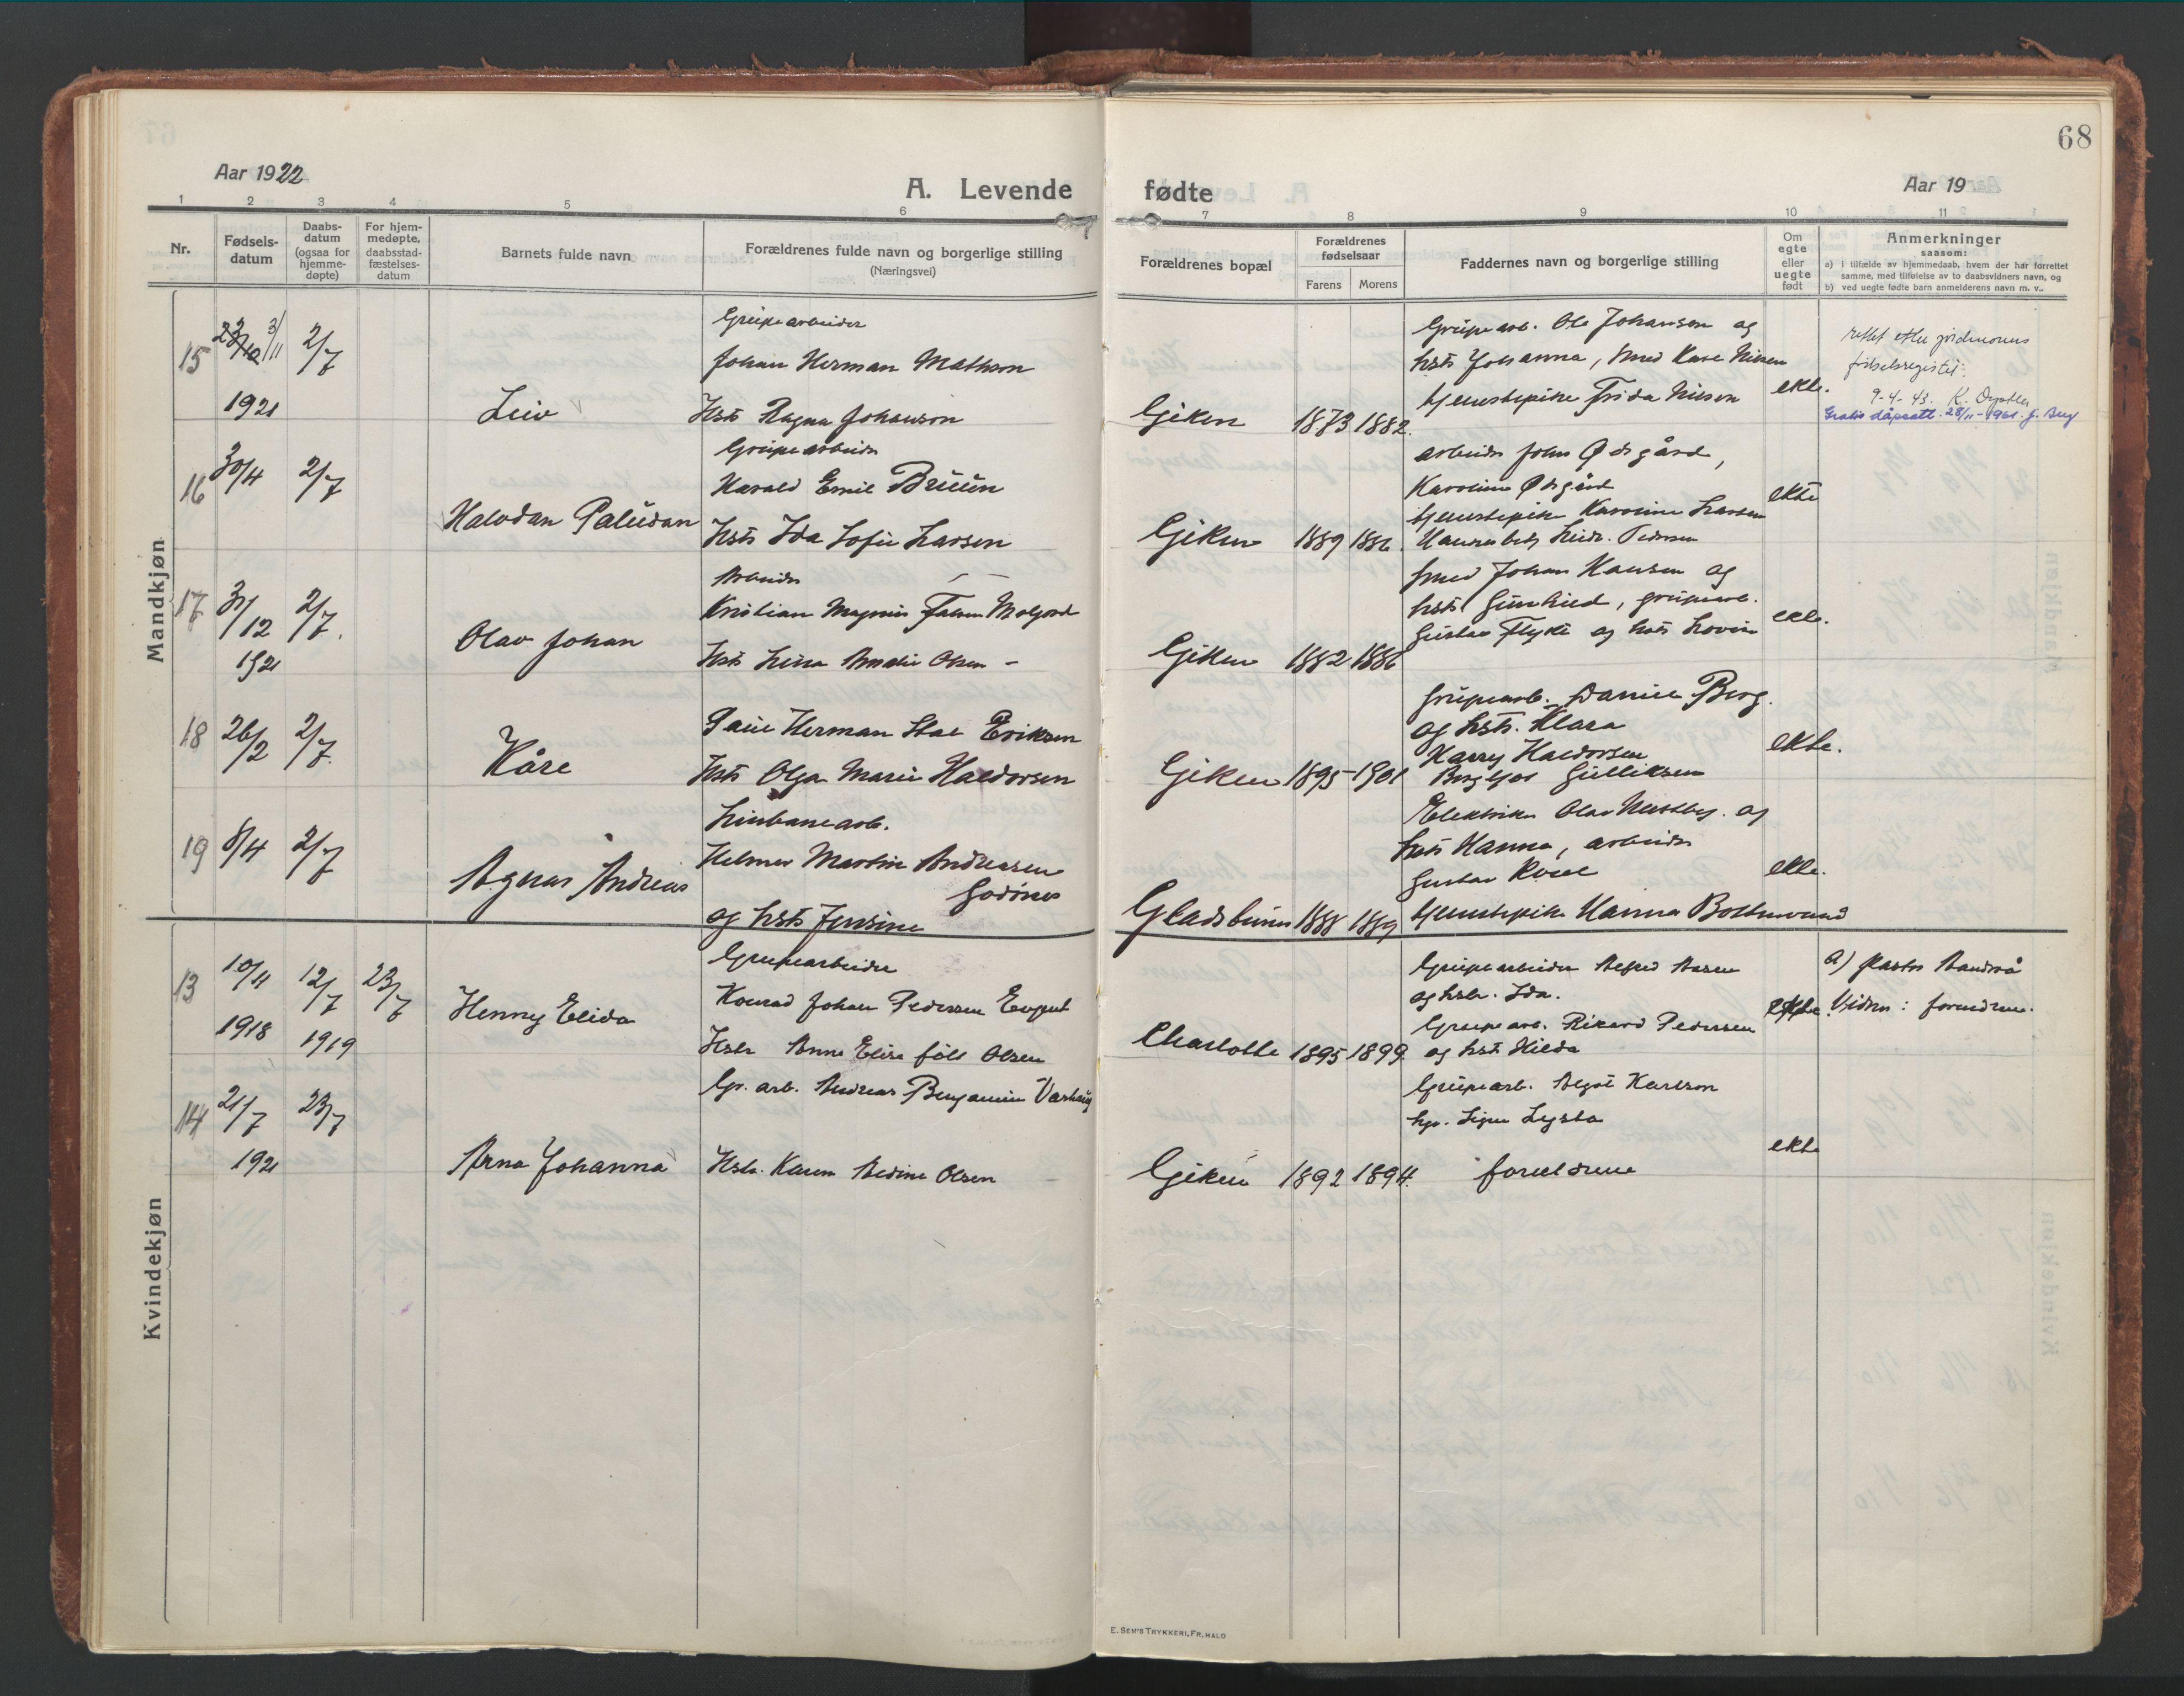 68
Aar 1922
A. Levende
fødte
Aar 19
1 2 3 4 5 6 7 8 9 10 11
Nr.
Fødsels-
datum
Daabs-
datum
(ogsaa for
hjemme-
døpte)
For hjem-
medøpte,
daabsstad-
fæstelses-
datum
Barnets fulde navn
Forældrenes fulde navn og borgerlige stilling
(Næringsvei)
Forældrenes bopæl
Forældrenes
fødselsaar
Farens Morens
Faddernes navn og borgerlige stilling
Om
egte
eller
uegte
født
Anmerkninger
saasom:
a) i tilfælde av hjemmedaab, hvem der har forrettet
samme, med tilføielse av to daabsvidners navn, og
b) ved uegte fødte barn anmelderens navn m. v.
Mandkjøn
15 3/11 1921 2/7
Leiv
Grupearbeider
Johan Herman Mathson
Hst Ragna Johanson
Giken 1873 1882.
Grupearb. Ole Johanson og
hst Johanna, smed Kase Nilsen
tjenestepike Frida Nilsen
ekte.
rettet etter jordmorens
fødselsregister.
9-4-43.
Gratis dåpsatt. 28/11-1961. J. Berg
16 30/4 2/7
Halvdan Paludan
Grupearbeider
Harald Emil Bruun
Hst Ida Sofie Larsen
Giken 1889 1886.
arbeider John Ødsgård,
Karoline Ødsgård
tjenestepike Karoline Larsen
Pedersen
ekte
17 31/12 1921 2/7.
Olav Johan
Arbeider
Kristian Magnus Falsen Molgord
Hst Lina Amalie Olsen -
Giken 1882 1886
smed Johan Hansen og
hst Gunhild, grupearb.
Gustav Flykt og hst Lovise
ekte.
18 26/2 2/7.
Kåre
Paul Herman Stal Eriksen
Hst Olga Marie Haldorsen
Giken 1895 1901
Grupearb. Daniel Berg
og hst. Klara
Harry Haldorsen
Bergljot Gulliksen
ekte.
19 8/4 2/7
Agnar Andreas
Linbanearb.
Helmer Martin Andreassen
Godönes
og hst Jensine
Gladsbunn 1888 1889
Elektriker Olav Hustby. og
hst Hanna, arbeider
Gustav Roael
tjenestepike Hanna Boltmund
ekte.
Kvindekjøn
13 10/11 1918 12/7 1919 23/7
Henny Elida
Grupearbeider
Konrad Johan Pedersen
Hstr Anna Elise föll Olsen
Charlotte 1895 1899.
Grupearbeider Alfred Aasen
og hstr. Ida.
Grupearb. Rikard Pedersen
og hst Hilda
ekte.
a) Pastor Sandvå
Vidner: foreldrene.
14 21/7 1921 23/7
Arna Johanna
Gr. arb. Andreas Benjamin Varhaug
Hstr. Karen Aldine Olsen
Giken 1892 1894.
Grupearb. Algot Karlson
hp. Signe Lysta
foreldrene
ekte
E. SEM'S TRYKKERI, FR.HALD